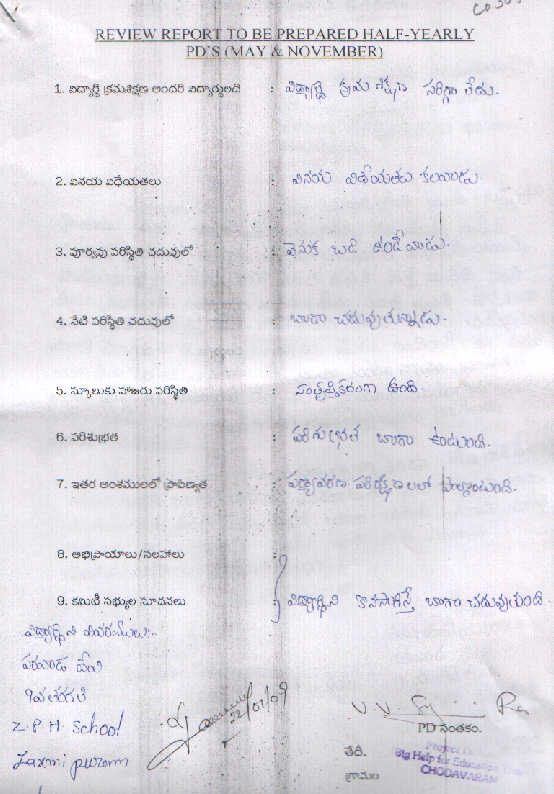 REVIEW REPORT TO BE PREPARED HALF-YEARLY
PD'S (MAY & NOVEMBER)
1. విద్యార్థి క్రమశిక్షణ అందరి విద్యార్థులతో : విద్యార్థి క్రమ శిక్షణ సరిగ్గా లేదు.
2. వినయ విధేయతలు : వినయ విధేయతలు కలవాడు
3. పూర్వపు పరిస్థితి చదువులో : వెనుక బడి ఉండేవాడు.
4. నేటి పరిస్థితి చదువులో : బాగా చదువుతున్నాడు.
5. స్కూలుకు హాజరు పరిస్థితి : సంతృప్తికరంగా ఉంది.
6. పరిశుభ్రత : పరిశుభ్రత బాగా ఉంటుంది.
7. ఇతర అంశములలో ప్రావీణ్యత : పర్యావరణ పరిరక్షణలలో పాల్గొంటుంది.
8. అభిప్రాయాలు/సలహాలు :
9. కమిటీ సభ్యుల సూచనలు : విద్యార్థిని కొనసాగిస్తే బాగా చదువుతుంది.
విద్యార్థిని వివరములు:-
9వ తరగతి
Z.P.H. School
Laxmi puram
22/01/09
PD సంతకం.
తేది.
గ్రామము
Big Help for Education
CHODAVARAM